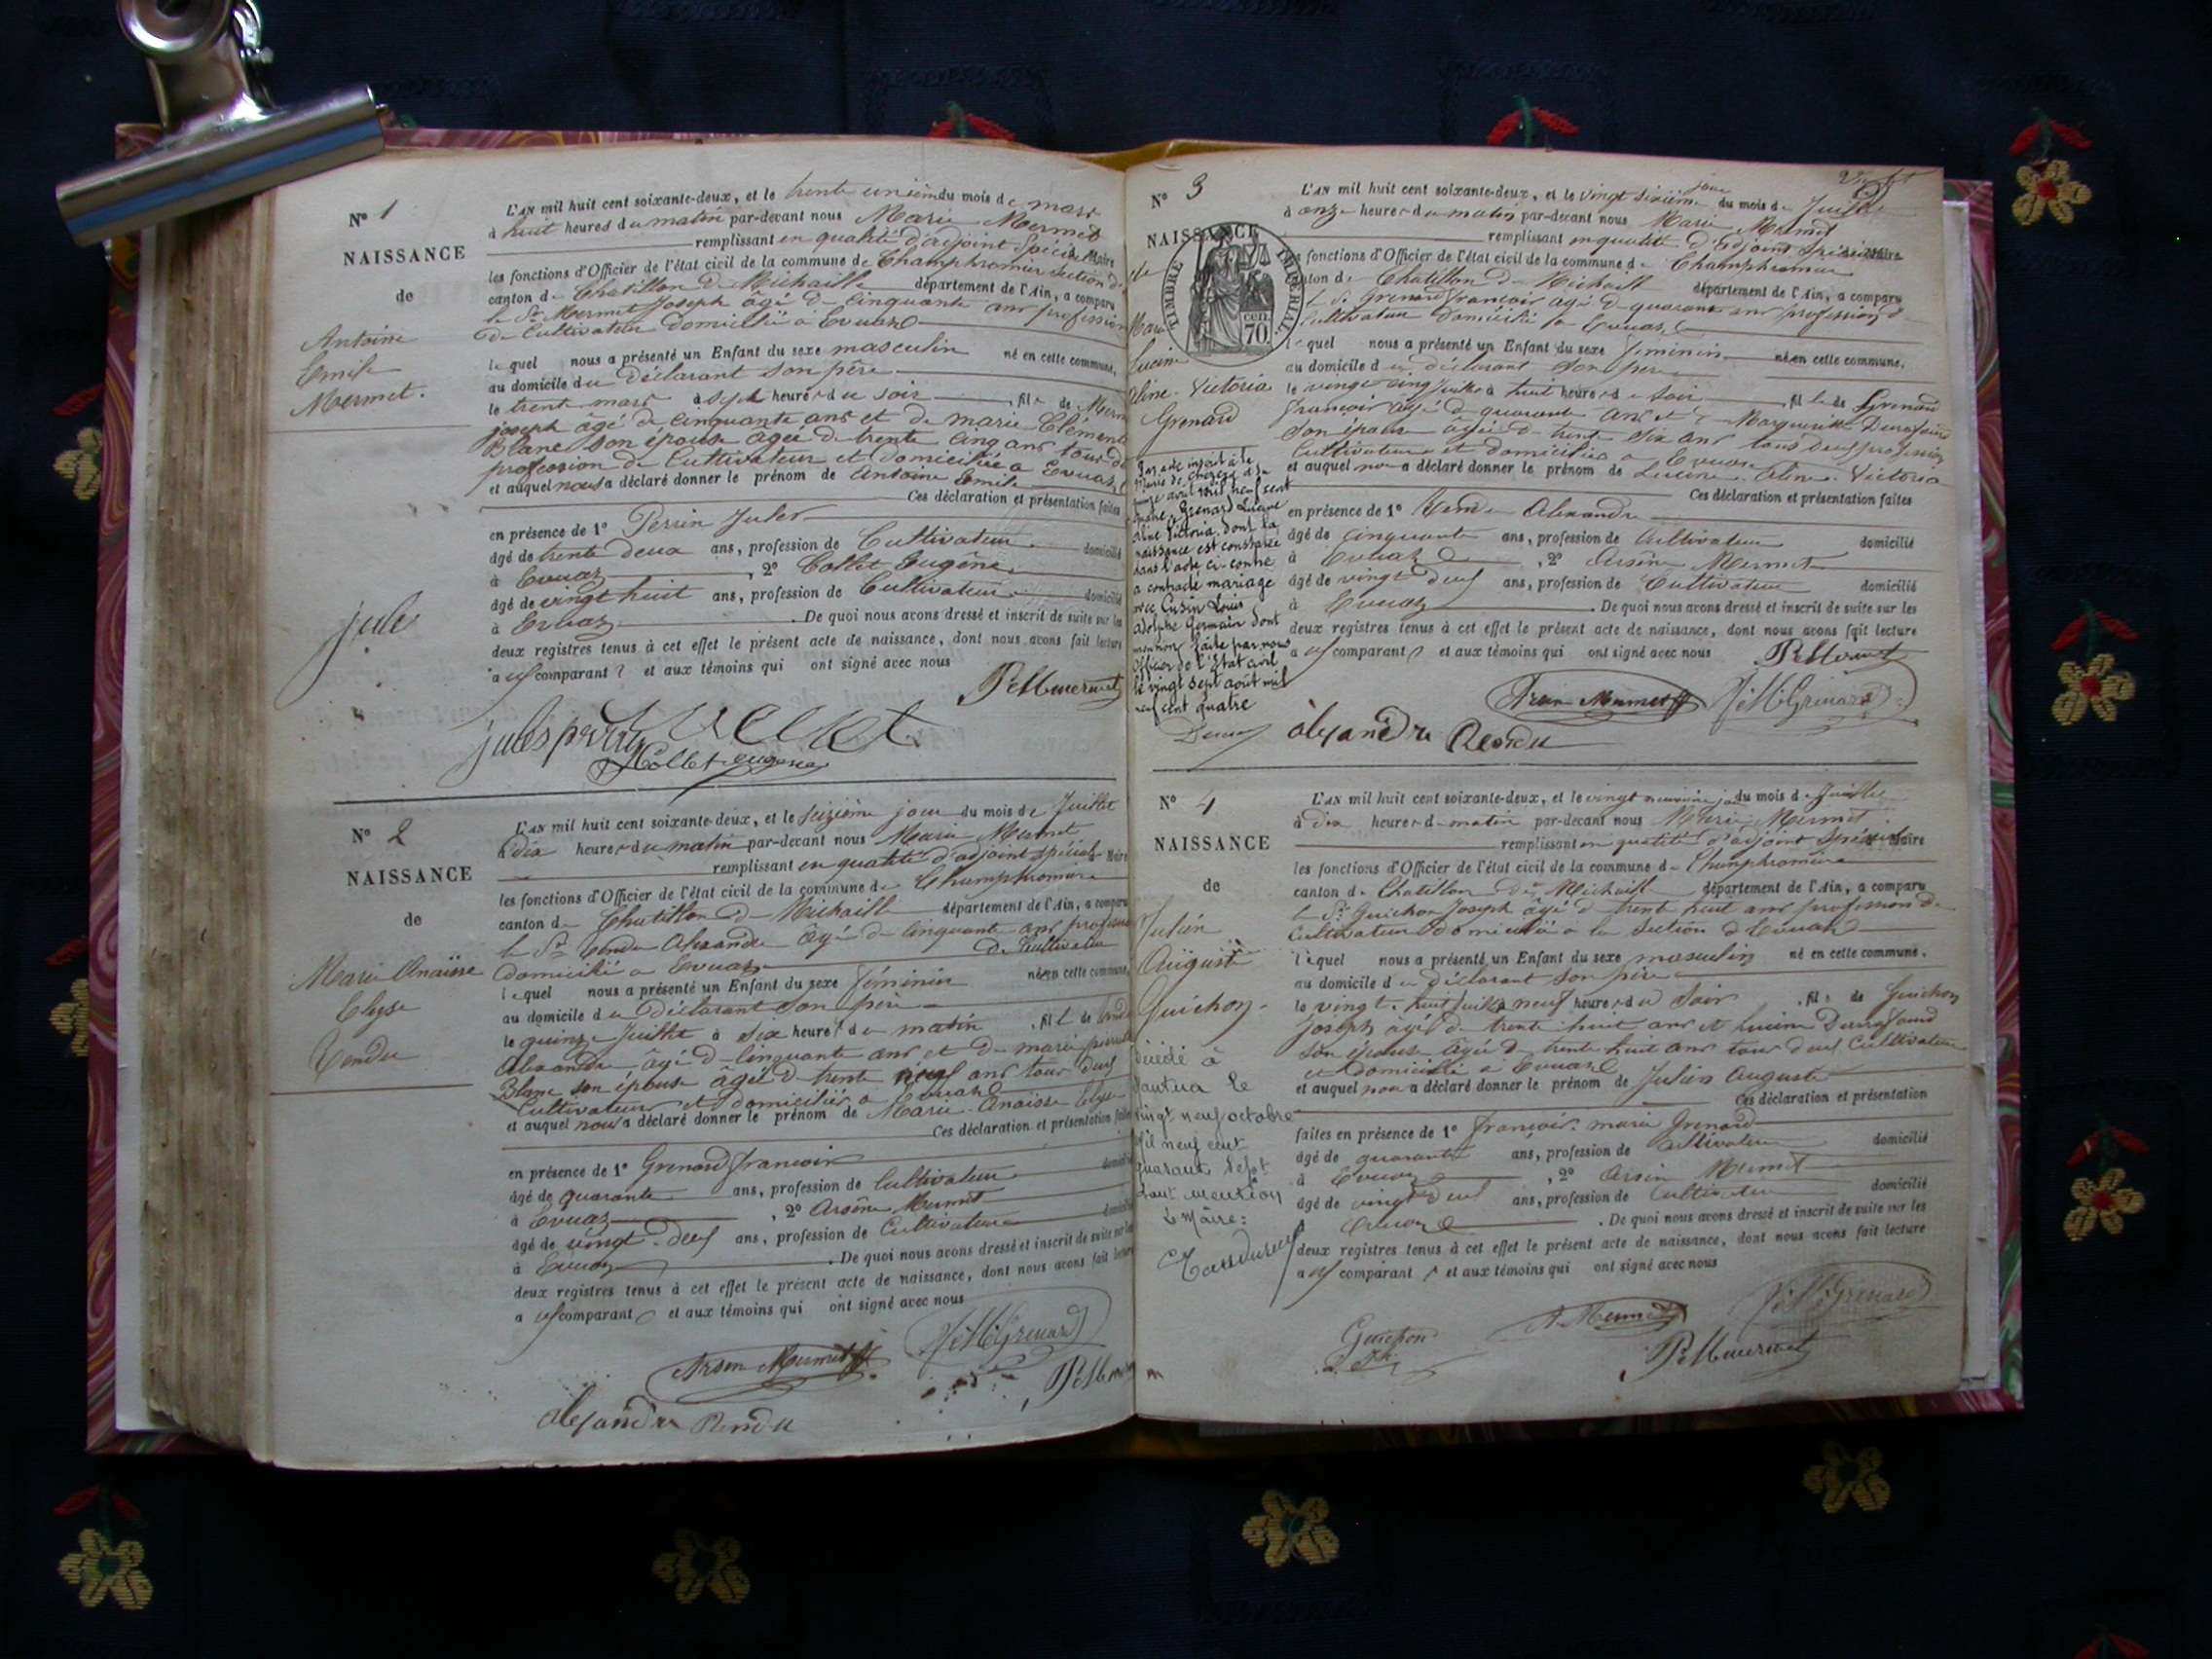 N° 1
NAISSANCE
de
Antoine
Emile
Mermet.
L'AN mil huit cent soixante-deux, et le trente unième du mois de mars
à huit heures du matin par-devant nous Marie Mermet
remplissant en qualité d'adjoint spécial Maire
les fonctions d'Officier de l'état civil de la commune de Champfromier section d
canton de Chatillon de Michaille département de l'Ain, a comparu
le Sr Mermet Joseph âgé de cinquante ans profession
de Cultivateur domicilié à Evuaz
lequel nous a présenté un Enfant du sexe masculin né en cette commune,
au domicile du déclarant son père
le trente mars à sept heures du soir , fils de Merm
joseph âgé de cinquante ans et de marie Clément
Blanc son épouse agée de trente cinq ans tous d
profession de Cultivateur et domiciliés a Evuaz
et auquel nous a déclaré donner le prénom de Antoine Emile
Ces déclaration et présentation faites
en présence de 1° Perrin Jules
âgé de trente deux ans, profession de Cultivateur domicilié
à Evuaz , 2° Collet Eugène
âgé de vingt huit ans, profession de Cultivateur domicilié
à Evuaz . De quoi nous avons dressé et inscrit de suite sur les
deux registres tenus à cet effet le présent acte de naissance, dont nous avons fait lecture
aux comparants et aux témoins qui ont signé avec nous
jule
Collet eugene
N° 2
NAISSANCE
de
Marie Anaïsse
Elyse
Rendu
L'AN mil huit cent soixante-deux, et le seizième jour du mois de Juillet
à dix heures du matin par-devant nous Marie Mermet
remplissant en qualité d'adjoint spécial Maire
les fonctions d'Officier de l'état civil de la commune de Champfromier
canton de Chatillon de Michaille département de l'Ain, a comparu
le Sr Rendu Alexandre âgé de cinquante ans profession
de Cultivateur
domicilié a Evuaz
lequel nous a présenté un Enfant du sexe féminin né en cette commune,
au domicile du déclarant son père
le quinze Juillet à six heures du matin , fille de Rendu
Alexandre âgé de cinquante ans et de marie
Blanc son épouse âgée de trente neuf ans tous deux
Cultivateurs et domiciliés a Evuaz
et auquel nous a déclaré donner le prénom de Marie Anaïsse Elyse
Ces déclaration et présentation faites
en présence de 1° Grenard françois
âgé de quarante ans, profession de Cultivateur domicilié
à Evuaz , 2° Arsène Mermet
âgé de vingt-deux ans, profession de Cultivateur domicilié
à Evuaz . De quoi nous avons dressé et inscrit de suite sur les
deux registres tenus à cet effet le présent acte de naissance, dont nous avons fait lecture
aux comparants et aux témoins qui ont signé avec nous
Arsen Mermet JeMGrenard
alexandre Rendu
N° 3
NAISSANCE
de
TIMBRE IMPÉRIAL.
70 cen.
Lucine
Aline-Victoria
Grenard
L'AN mil huit cent soixante-deux, et le vingt sixième jour du mois de Juillet
à onze heures du matin par-devant nous Marie Mermet
remplissant en qualité d'adjoint spécial Maire
les fonctions d'Officier de l'état civil de la commune de Champfromier
canton de Chatillon de Michaille département de l'Ain, a comparu
le Sr Grenard françois âgé de quarante ans profession de
Cultivateur domicilié a Evuaz
lequel nous a présenté un Enfant du sexe féminin né en cette commune,
au domicile du déclarant son père
le vingt cinq Juillet à huit heures du soir , fille de Grenard
françois âgé de quarante ans et de Marguerite
son épouse âgée de trente six ans tous deux profession
Cultivateurs et domiciliés a Evuaz
et auquel nous a déclaré donner le prénom de Lucine Aline Victoria
Ces déclaration et présentation faites
en présence de 1° Rendu Alexandre
âgé de cinquante ans, profession de Cultivateur domicilié
à Evuaz , 2° Arsène Mermet
âgé de vingt deux ans, profession de Cultivateur domicilié
à Evuaz . De quoi nous avons dressé et inscrit de suite sur les
deux registres tenus à cet effet le présent acte de naissance, dont nous avons fait lecture
aux comparants et aux témoins qui ont signé avec nous
Par acte inscrit à la
Mairie de
avril mil neuf cent
quatre, Grenard Lucine
Aline Victoria, dont la
naissance est constatée
dans l'acte ci-contre
a contracté mariage
avec Cusin Louis
Adolphe Germain dont
mention faite par nous
Officier de l'Etat civil
le vingt sept août mil
neuf cent quatre
Arsen Mermet JeMGrenard
alexandre Rendu
N° 4
NAISSANCE
de
Julien
Auguste
Guichon
L'AN mil huit cent soixante-deux, et le vingt neuvième jour du mois de Juillet
à dix heures du matin par-devant nous Marie Mermet
remplissant en qualité d'adjoint spécial Maire
les fonctions d'Officier de l'état civil de la commune de Champfromier
canton de Chatillon de Michaille département de l'Ain, a comparu
le Sr Guichon Joseph âgé de trente huit ans profession de
Cultivateur domicilié a la section d'Evuaz
lequel nous a présenté un Enfant du sexe masculin né en cette commune.
au domicile du déclarant son père
le vingt-huit Juillet à neuf heures du soir , fils de Guichon
Joseph âgé de trente huit ans et Lucine
son épouse âgée de trente huit ans tous deux Cultivateurs
et domicilié a Evuaz
et auquel nous a déclaré donner le prénom de Julien Auguste
Ces déclaration et présentation
faites en présence de 1° françois marie Grenard
âgé de quarante ans, profession de Cultivateur domicilié
à Evuaz , 2° Arsin Mermet
âgé de vingt deux ans, profession de Cultivateur domicilié
à Evuaz . De quoi nous avons dressé et inscrit de suite sur les
deux registres tenus à cet effet le présent acte de naissance, dont nous avons fait lecture
aux comparants et aux témoins qui ont signé avec nous
Décédé à
Nantua le
vingt neuf octobre
mil neuf cent
quarante sept
dont mention
Le Maire:
Guichon A Mermet JeMGrenard